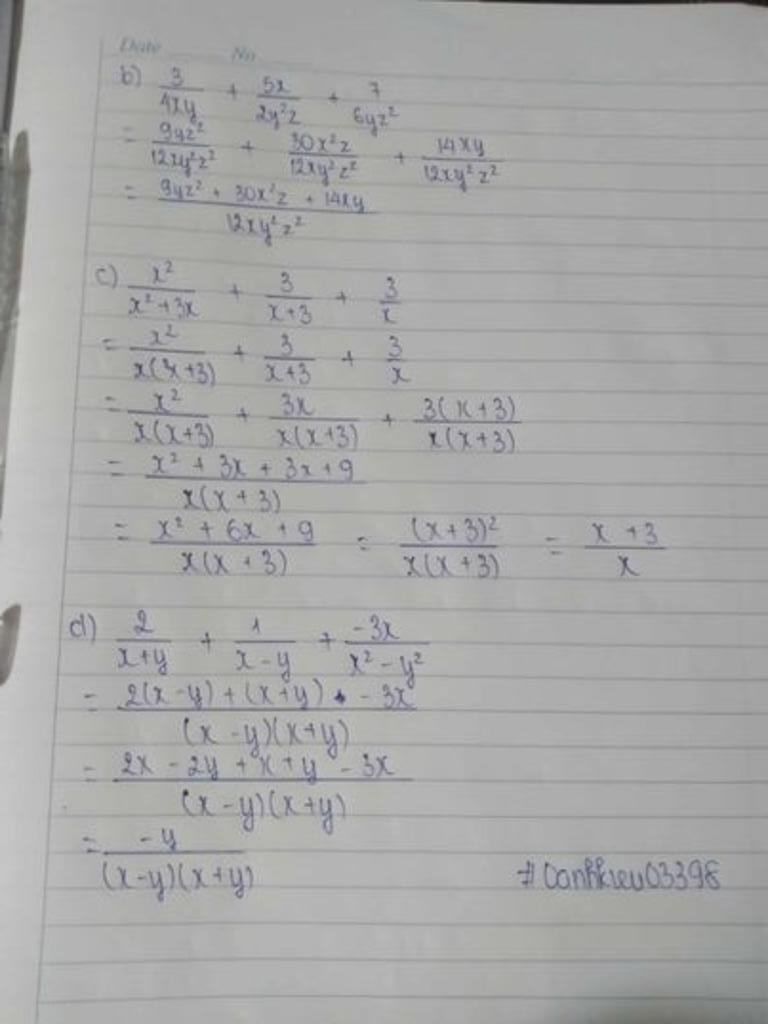 Date No
b) 3/4xy + 5x/2y²z + 7/6yz²
= 9yz²/12xy²z² + 30x²z/12xy²z² + 14xy/12xy²z²
= (9yz² + 30x²z + 14xy)/12xy²z²
c) x²/(x²+3x) + 3/(x+3) + 3/x
= x²/x(x+3) + 3/(x+3) + 3/x
= x²/x(x+3) + 3x/x(x+3) + 3(x+3)/x(x+3)
= (x² + 3x + 3x + 9)/x(x+3)
= (x² + 6x + 9)/x(x+3) = (x+3)²/x(x+3) = (x+3)/x
d) 2/(x+y) + 1/(x-y) + -3x/(x²-y²)
= (2(x-y) + (x+y) - 3x)/(x-y)(x+y)
= (2x - 2y + x + y - 3x)/(x-y)(x+y)
= -y/(x-y)(x+y)